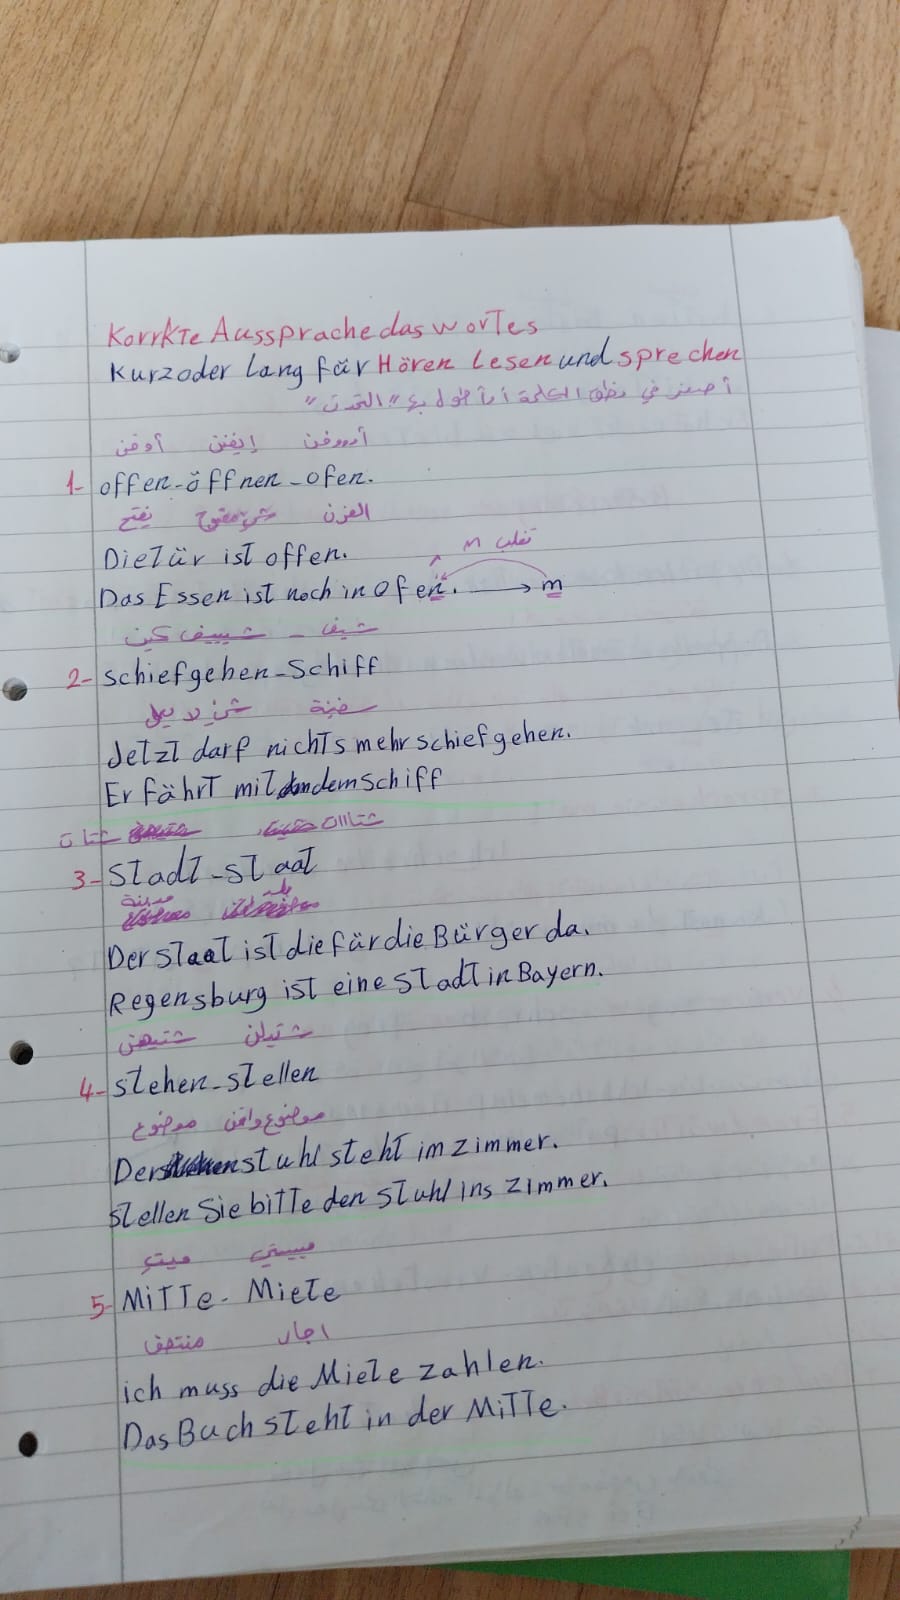 Korrkte Aussprache das wortes
Kurz oder Lang für Hören Lesen und sprechen
في نطق الكلمة
أوفن إيفنن أوووفن
1- offen-öffnen-ofen.
يفتح الفرن
Die Tür ist offen.
تقلب M
Das Essen ist noch in Ofen. → m
شيييف كين - شيف
2- schiefgehen-Schiff
Jetzt darf nichts mehr schiefgehen.
Er fährt mit dem schiff
شتات شتااات
3- Stadt-staat
مدينة بلد
Der staat ist die für die Bürger da.
Regensburg ist eine stadt in Bayern.
شتيهن شتيلن
4- stehen-stellen
موضوع موضوع
Der stuhl steht im zimmer.
stellen Sie bitte den stuhl ins zimmer.
ميتي
5- Mitte- Miete
منتصف اجار
ich muss die Miete zahlen.
Das Buch steht in der Mitte.